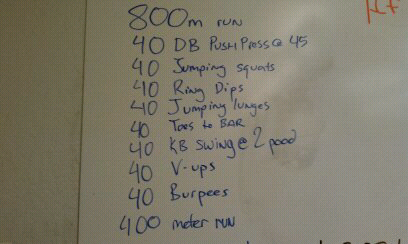 800m run
40 DB Push Press @ 45
40 Jumping squats
40 Ring Dips
40 Jumping lunges
40 Toes to BAR
40 KB Swing @ 2 pood
40 V-ups
40 Burpees
400 meter run